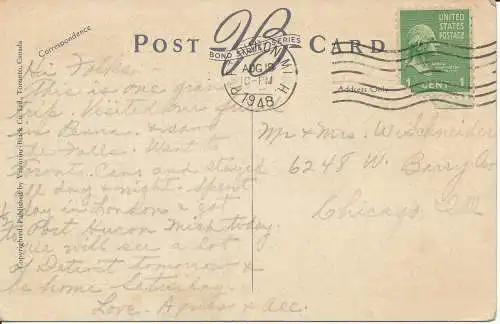 POST CARD
BOND STREET SERIES
PORT HURON MICH.
AUG 19
PM
1948
UNITED STATES POSTAGE
1 CENT 1
Correspondence
Address Only
Copyrighted & Published by Valentine-Black Co., Ltd., Toronto, Canada
Hi Folks
This is one grand
trip. Visited our
in Penna. & saw
the Falls. Went to
Toronto, Can. and stayed
all day & night. Spent
½ day in London & got
to Port Huron Mich today.
we will see a lot
of Detroit tomorrow &
be home Saturday.
Love. Agnes & Al.
Mr & Mrs. W. Schneider
6248 W.
Chicago, Ill